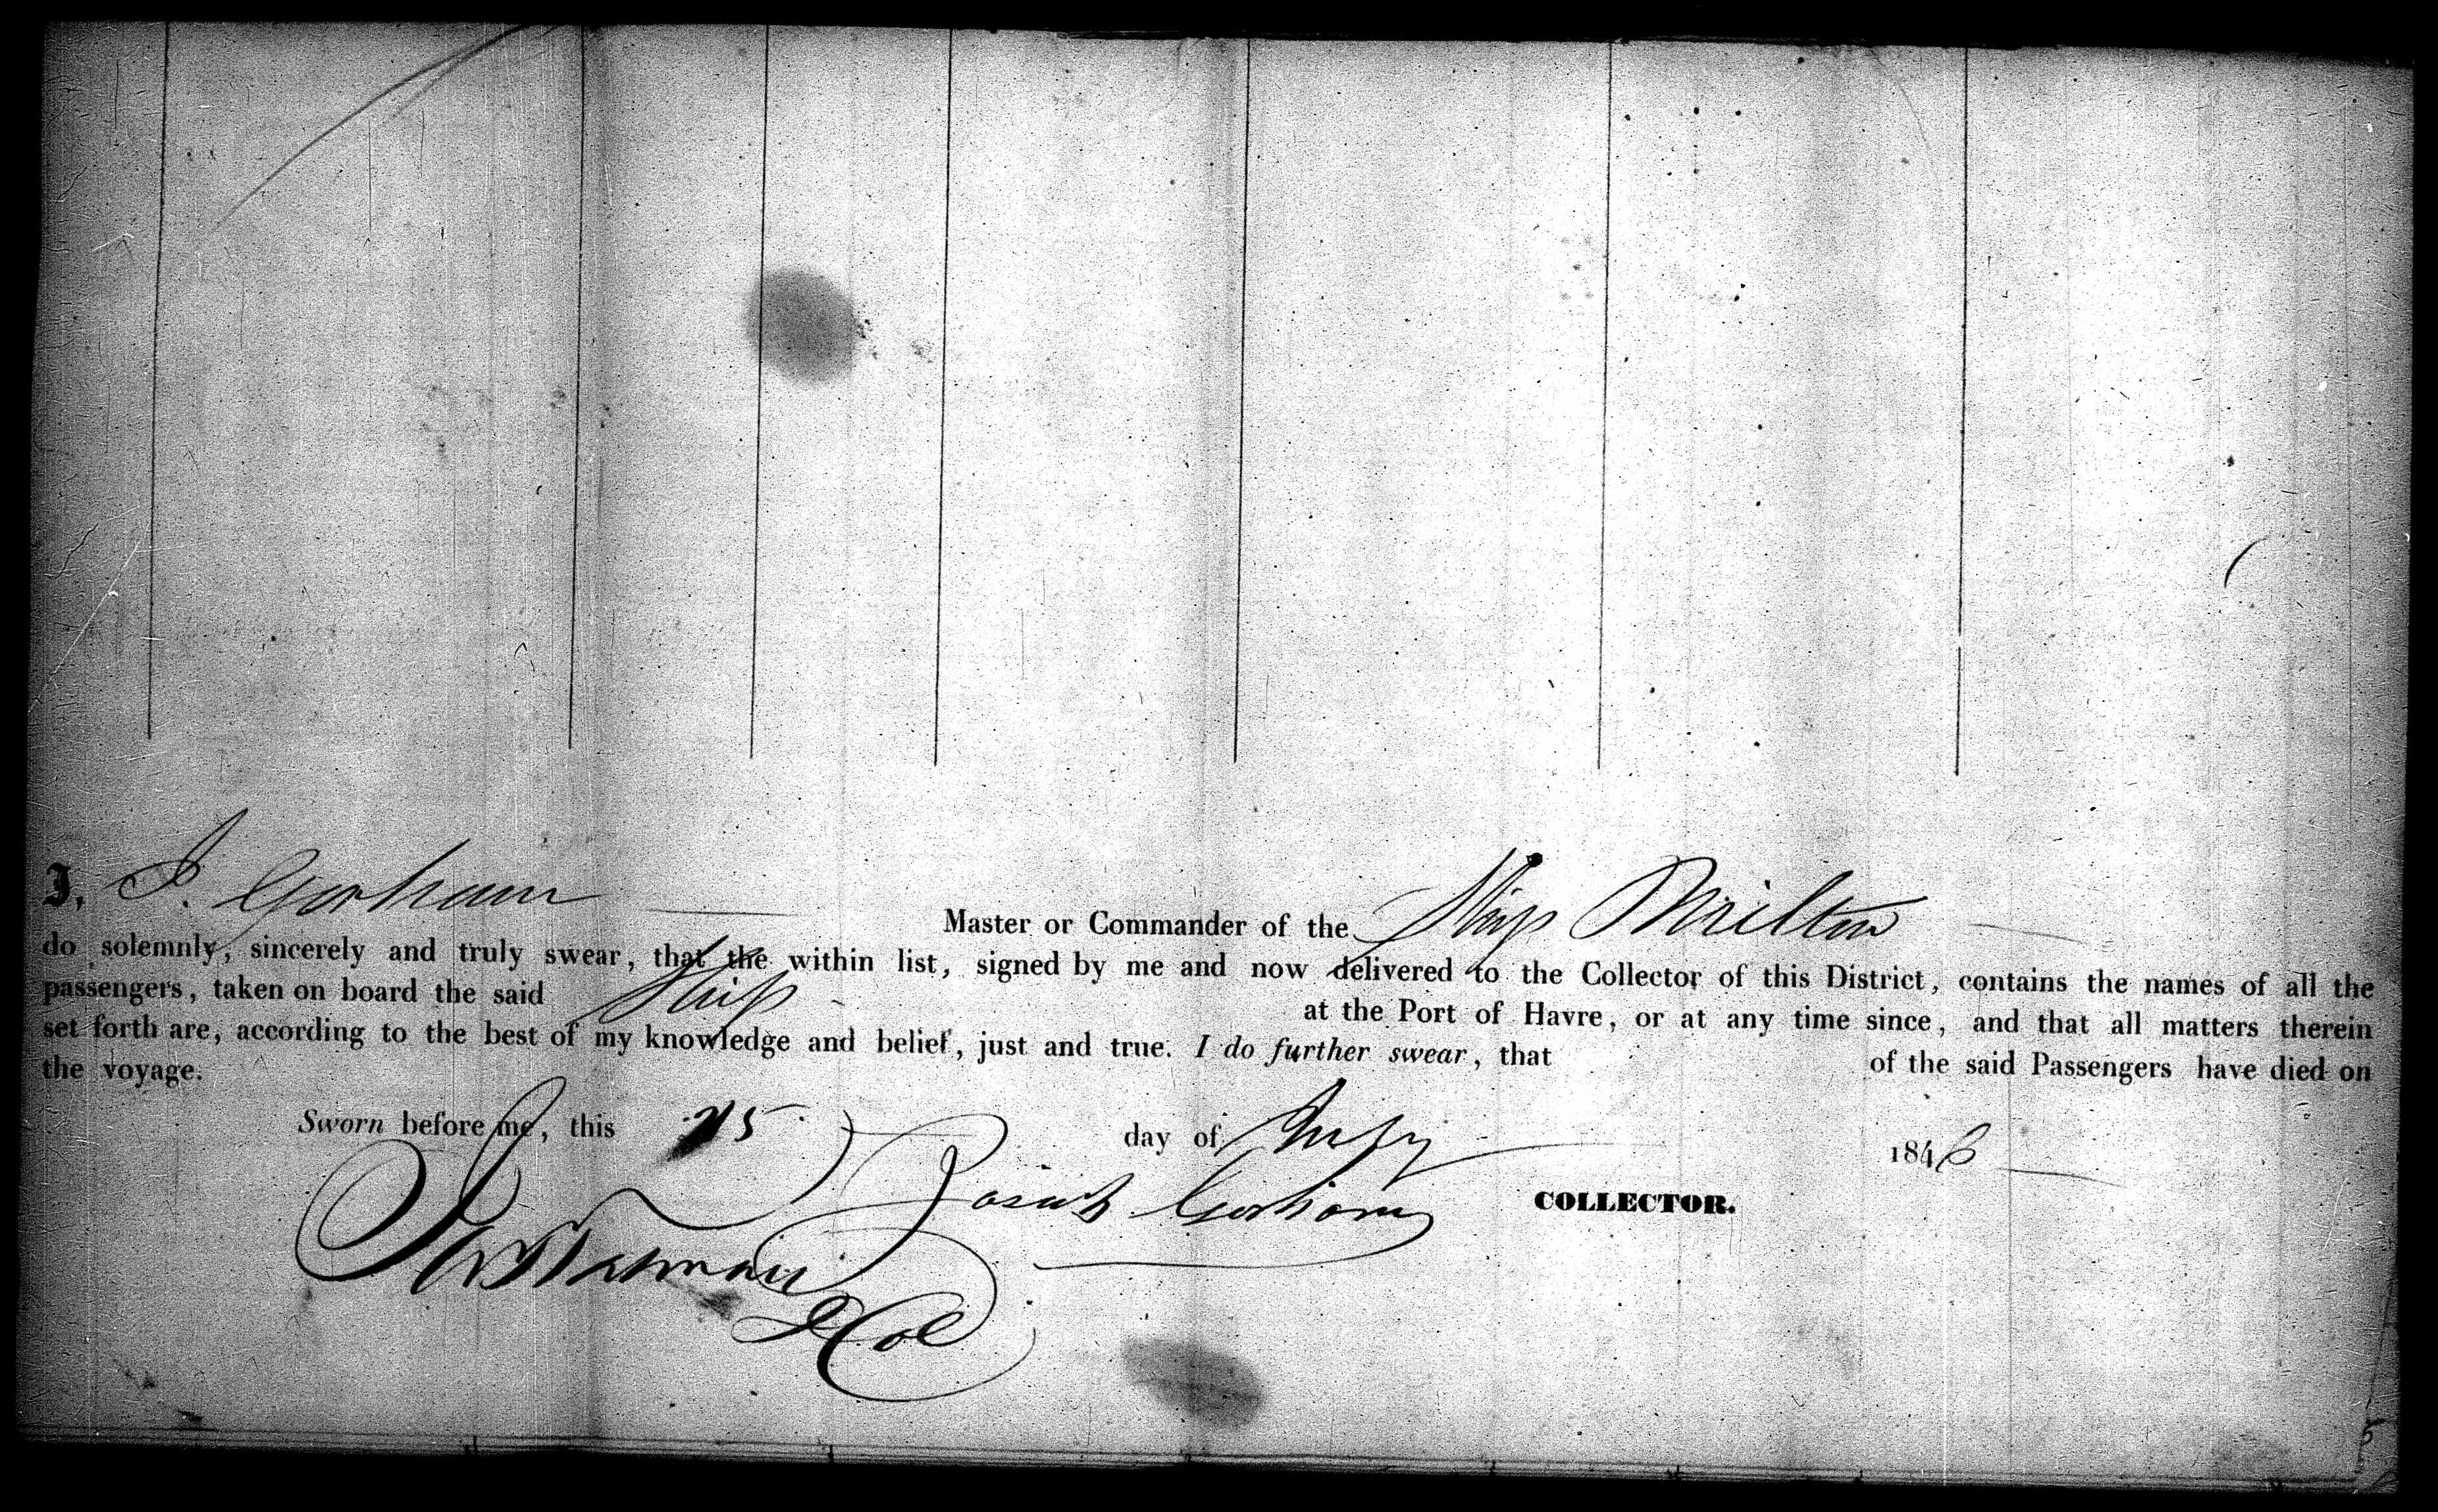 I, J. Gorham Master or Commander of the Ship Milton
do solemnly, sincerely and truly swear, that the within list, signed by me and now delivered to the Collector of this District, contains the names of all the
passengers, taken on board the said Ship at the Port of Havre, or at any time since, and that all matters therein
set forth are, according to the best of my knowledge and belief, just and true. I do further swear, that of the said Passengers have died on
the voyage.
Sworn before me, this 25 day of July 1846
Josiah Gorham COLLECTOR.
D Col
5